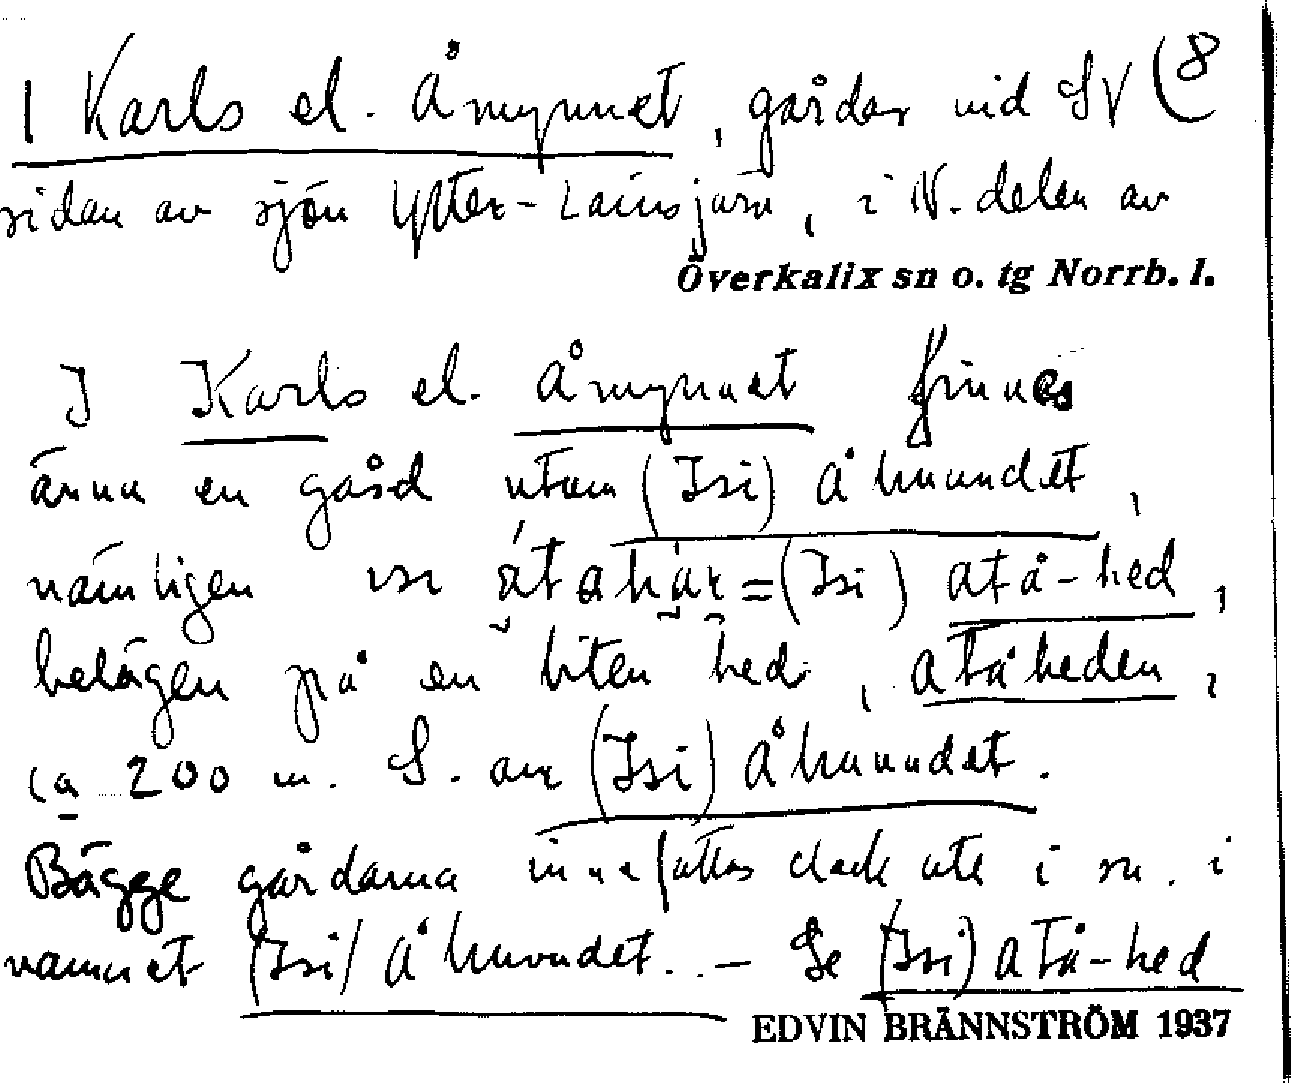 I Karls el. Åmynnet, gårdar vid SV (8
sidan av sjön Ytter-Lainsjärv, i N. delen av
Överkalix sn o. tg Norrb. l.
I Karls el. Åmynnet finnes
ännu en gård utom (Isi) Åhuvudet,
nämligen (Isi) atå-hed,
belägen på en liten hed, atåheden,
ca 200 m. S. om (Isi) Åhuvudet.
Bägge gårdarna innefattas dock ute i sn. i
namnet (Isi) Åhuvudet. - Se (Isi) atå-hed
EDVIN BRÄNNSTRÖM 1937